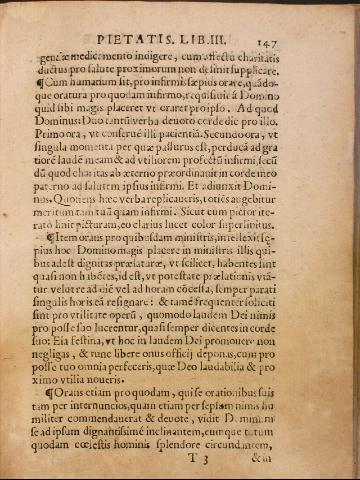 PIETATIS. LIB. III. 147
gentiæ medicamento indigere, cum affectu charitatis
ductus pro salute proximorum non desinit supplicare.
¶Cum humanum sit, pro infirmis sæpius orare, quãdo-
que oratura pro quodam infirmo, requisiuit â Domino
quid sibi magis placeret vt oraret pro ipso. Ad quod
Dominus: Duo tantũ verba deuoto corde dic pro illo.
Primo ora, vt conserué illi pacientiã. Secundo ora, vt
singula momenta per quæ passurus est, perducã ad gra
tiorẽ laudẽ meam & ad vtiliorem profectũ infirmi, secũ
dũ quod charitas ab æterno præordinauit in corde meo
paterno ad salutem ipsius infirmi. Et adiunxit Domi-
nus. Quotiens hæc verba replicaueris, toties augebitur
meritum tam tuũ quam infirmi. Sicut cum pictor ite-
rato linit picturam, eo clarius lucet color superlinitus.
¶Item orans pro quibusdam ministris, intellexit sæ-
pius hoc Domino magis placere in ministris illis qui-
bus adest dignitas prælaturæ, vt scilicet, habentes sint
quasi non habẽtes, id est, vt potestate prælationis vtã-
tur velut re ad diẽ vel ad horam cõcessa, semper parati
singulis horis eã resignare: & tamẽ frequenter soliciti
sint pro vtilitate operũ, quomodo laudem Dei nimis
pro posse suo lucrentur, quasi semper dicentes in corde
suo: Eia festina, vt hoc in laudem Dei promouere non
negligas, & tunc libere onus officij deponas, cum pro
posse tuo omnia perfeceris, quæ Deo laudabilia & pro
ximo vtilia noueris.
¶Orans etiam pro quodam, qui se orationibus suis
tam per internuncios, quam etiam per seipsum nimis hu
militer commendauerat & deuote, vidit Dominum
se ad ipsum dignantissimè inclinantem, eumque totum
quodam cœlestis hominis splendore circundantem,
T 3 & in